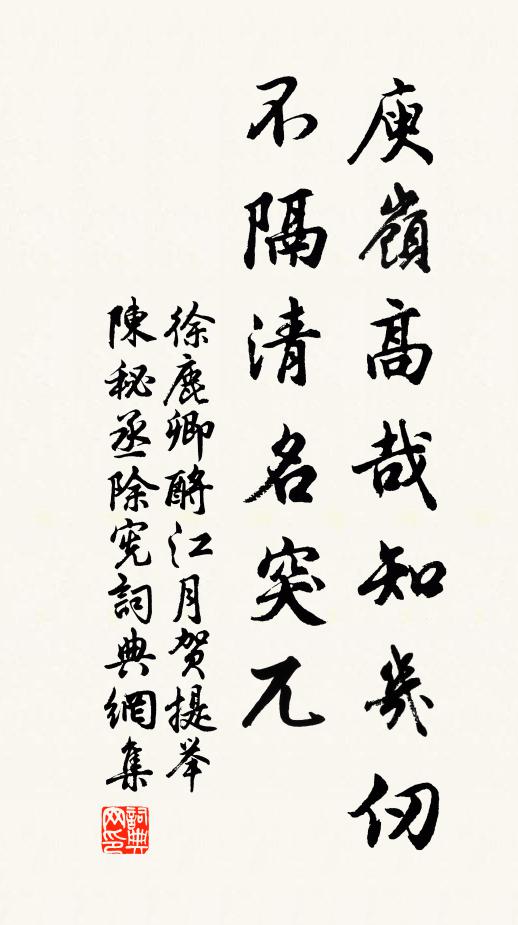 庾嶺高哉知幾仞
不隔清名突兀
徐鹿卿酹江月賀提举
陳秘丞除宪詞典網集
詞典
网印